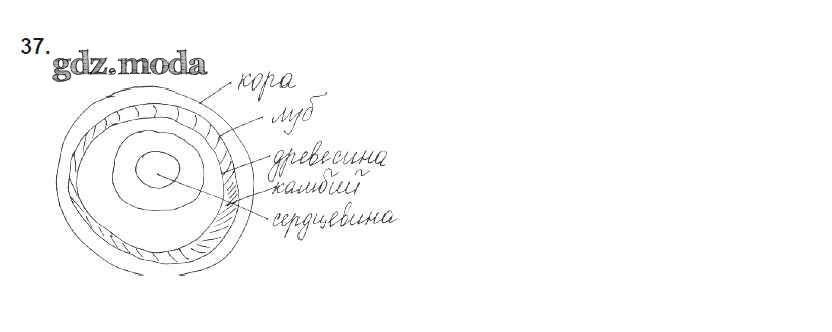 37.
gdz.moda
кора
луб
древесина
камбий
сердцевина